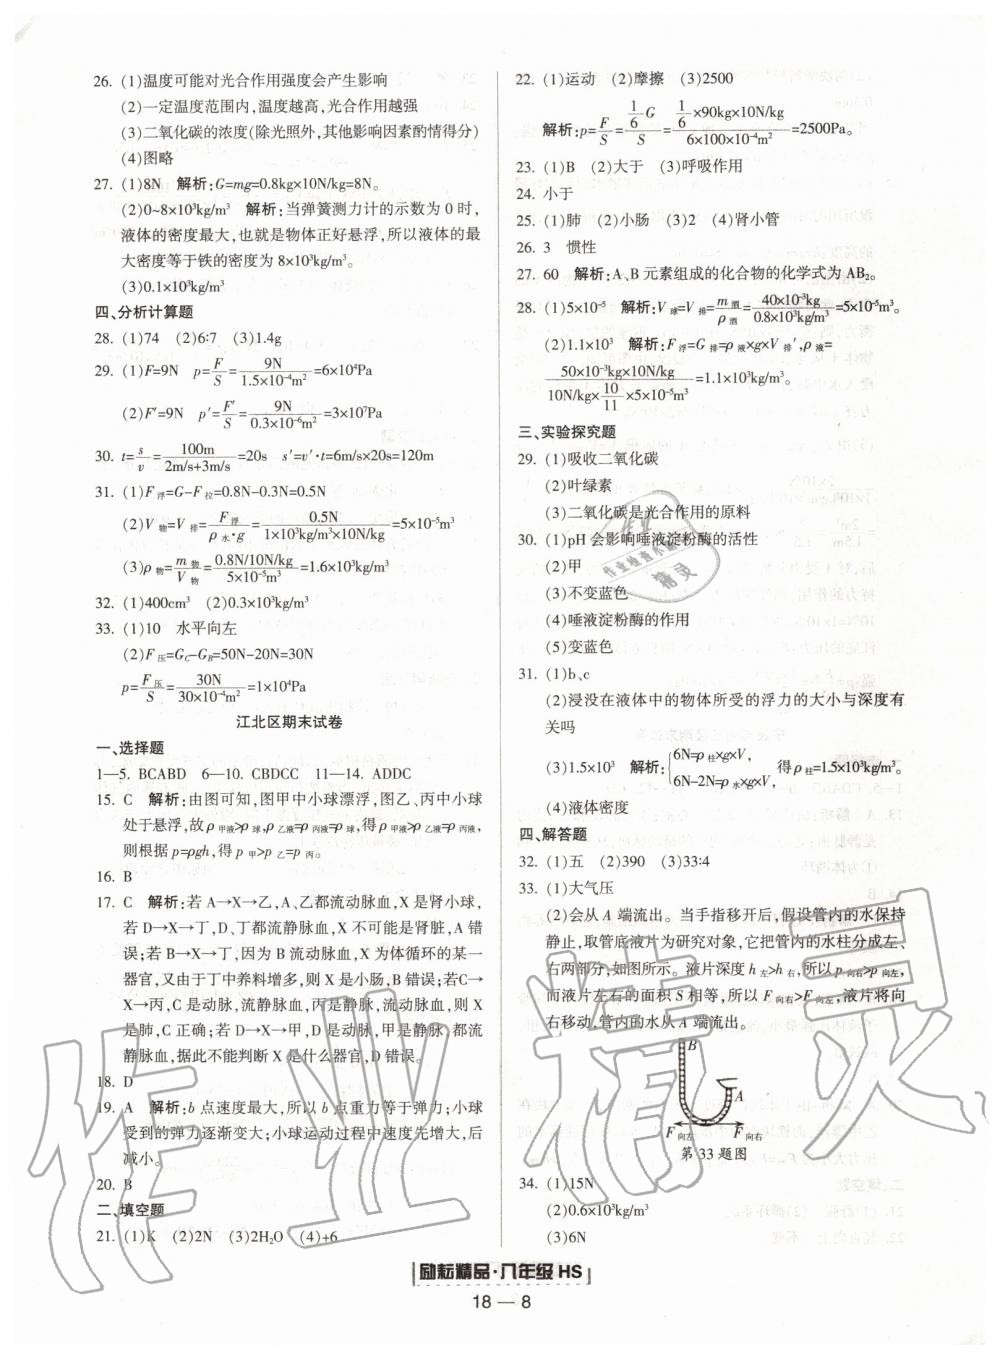 26. (1)温度可能对光合作用强度会产生影响
(2)一定温度范围内,温度越高,光合作用越强
(3)二氧化碳的浓度(除光照外,其他影响因素酌情得分)
(4)图略
27. (1)8N 解析:G=mg=0.8kg×10N/kg=8N。
(2)0~8×10³kg/m³ 解析:当弹簧测力计的示数为0时,
液体的密度最大,也就是物体正好悬浮,所以液体的最
大密度等于铁的密度为8×10³kg/m³。
(3)0.1×10³kg/m³
四、分析计算题
28. (1)74 (2)6:7 (3)1.4g
29. (1)F=9N p=F/S=9N/1.5×10⁻⁴m²=6×10⁴Pa
(2)F′=9N p′=F′/S=9N/0.3×10⁻⁶m²=3×10⁷Pa
30. t=s/v=100m/2m/s+3m/s=20s s′=v′·t=6m/s×20s=120m
31. (1)F浮=G-F拉=0.8N-0.3N=0.5N
(2)V物=V排=F浮/ρ水·g=0.5N/1×10³kg/m³×10N/kg=5×10⁻⁵m³
(3)ρ物=m物/V物=0.8N/10N/kg/5×10⁻⁵m³=1.6×10³kg/m³
32. (1)400cm³ (2)0.3×10³kg/m³
33. (1)10 水平向左
(2)F压=GC-GB=50N-20N=30N
p=F压/S=30N/30×10⁻⁴m²=1×10⁴Pa
江北区期末试卷
一、选择题
1—5. BCABD 6—10. CBDCC 11—14. ADDC
15. C 解析:由图可知,图甲中小球漂浮,图乙、丙中小球
处于悬浮,故ρ甲液>ρ球,ρ乙液=ρ丙液=ρ球,得ρ甲液>ρ乙液=ρ丙液,
则根据p=ρgh,得p甲>p乙=p丙。
16. B
17. C 解析:若A→X→乙,A、乙都流动脉血,X是肾小球,
若D→X→丁,D、丁都流静脉血,X不可能是肾脏,A错
误;若B→X→丁,因为B流动脉血,X为体循环的某一
器官,又由于丁中养料增多,则X是小肠,B错误;若C→
X→丙,C是动脉,流静脉血,丙是静脉,流动脉血,则X
是肺,C正确;若D→X→甲,D是动脉,甲是静脉都流
静脉血,据此不能判断X是什么器官,D错误。
18. D
19. A 解析:b点速度最大,所以b点重力等于弹力;小球
受到的弹力逐渐变大;小球运动过程中速度先增大,后
减小。
20. B
二、填空题
21. (1)K (2)2N (3)2H₂O (4)+6
22. (1)运动 (2)摩擦 (3)2500
解析:p=F/S=1/6G/S=1/6×90kg×10N/kg/6×100×10⁻⁴m²=2500Pa。
23. (1)B (2)大于 (3)呼吸作用
24. 小于
25. (1)肺 (2)小肠 (3)2 (4)肾小管
26. 3 惯性
27. 60 解析:A、B元素组成的化合物的化学式为AB₂。
28. (1)5×10⁻⁵ 解析:V球=V排=m酒/ρ酒=40×10⁻³kg/0.8×10³kg/m³=5×10⁻⁵m³。
(2)1.1×10³ 解析:F浮=G排=ρ液×g×V排′,ρ液=
50×10⁻³kg×10N/kg/10N/kg×10/11×5×10⁻⁵m³=1.1×10³kg/m³。
三、实验探究题
29. (1)吸收二氧化碳
(2)叶绿素
(3)二氧化碳是光合作用的原料
30. (1)pH会影响唾液淀粉酶的活性
(2)甲
(3)不变蓝色
(4)唾液淀粉酶的作用
(5)变蓝色
31. (1)b、c
(2)浸没在液体中的物体所受的浮力的大小与深度有
关吗
(3)1.5×10³ 解析:{6N=ρ柱×g×V, 6N-2N=ρ×g×V, 得ρ柱=1.5×10³kg/m³。
(4)液体密度
四、解答题
32. (1)五 (2)390 (3)33:4
33. (1)大气压
(2)会从A端流出。当手指移开后,假设管内的水保持
静止,取管底液片为研究对象,它把管内的水柱分成左、
右两部分,如图所示。液片深度h左>h右,所以p向右>p向左,
而液片左右的面积S相等,所以F向右>F向左,液片将向
右移动,管内的水从A端流出。
B
A
F向左 F向右
第33题图
34. (1)15N
(2)0.6×10³kg/m³
(3)6N
励耘精品·八年级HS
18—8
作业精灵